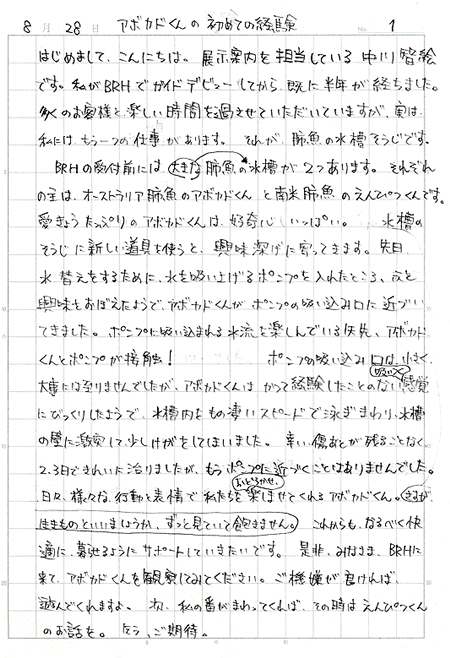 8月28日 アボカドくんの初めての経験 No. 1
はじめまして、こんにちは。展示案内を担当している中川智絵
です。私がBRHでガイドデビューしてから、既に半年が経ちました。
多くのお客様と楽しい時間を過させていただいていますが、実は、
私にはもう一つの仕事があります。それが、肺魚の水槽そうじです。
BRHの受付前には、大きな肺魚の水槽が2つあります。それぞれ
の主は、オーストラリア肺魚のアボカドくんと南米肺魚のえんぴつくんです。
愛きょうたっぷりのアボカドくんは、好奇心いっぱい。水槽の
そうじに新しい道具を使うと、興味深げに寄ってきます。先日、
水替えをするために、水を吸い上げるポンプを入れたところ、
興味をおぼえたようで、アボカドくんが、ポンプの吸い込み口に近づい
てきました。ポンプに吸い込まれる水流を楽しんでいる矢先、アボカド
くんとポンプが接触! ポンプの吸い込み口は小さく、
吸いつく
大事には至りませんでしたが、アボカドくんは、かつて経験したことのない感覚
にびっくりしたようで、水槽内をもの凄いスピードで泳ぎまわり、水槽
の壁に激突して、少しけがをしてしまいました。幸い、傷あとが残ることなく、
2、3日できれいに治りましたが、もうポンプに近づくことはありませんでした。
おどろかせ、
日々、様々な行動と表情で私たちを楽ませてくれるアボカドくん。さすが
生きものといいましょうか、ずっと見ていて飽きません。これからも、なるべく快
適に、暮せるようにサポートしていきたいです。是非、みなさま、BRHに
来て、アボカドくんを観察してみてください。ご機嫌が良ければ、
遊んでくれますよ。次、私の番がまわってくれば、その時はえんぴつくん
のお話を。どうご期待。